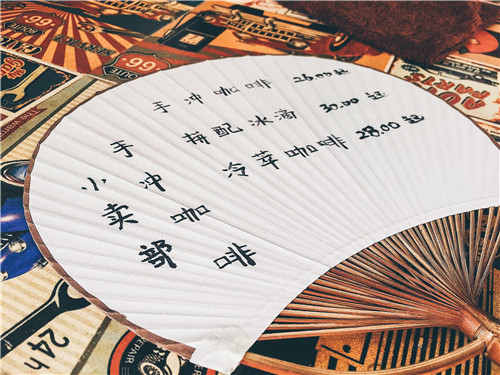 手冲咖啡
小卖部
手冲咖啡 25.00起
拼配冰滴 30.00起
冷萃咖啡 28.00起
66
66
AUTO
PARTS
24h